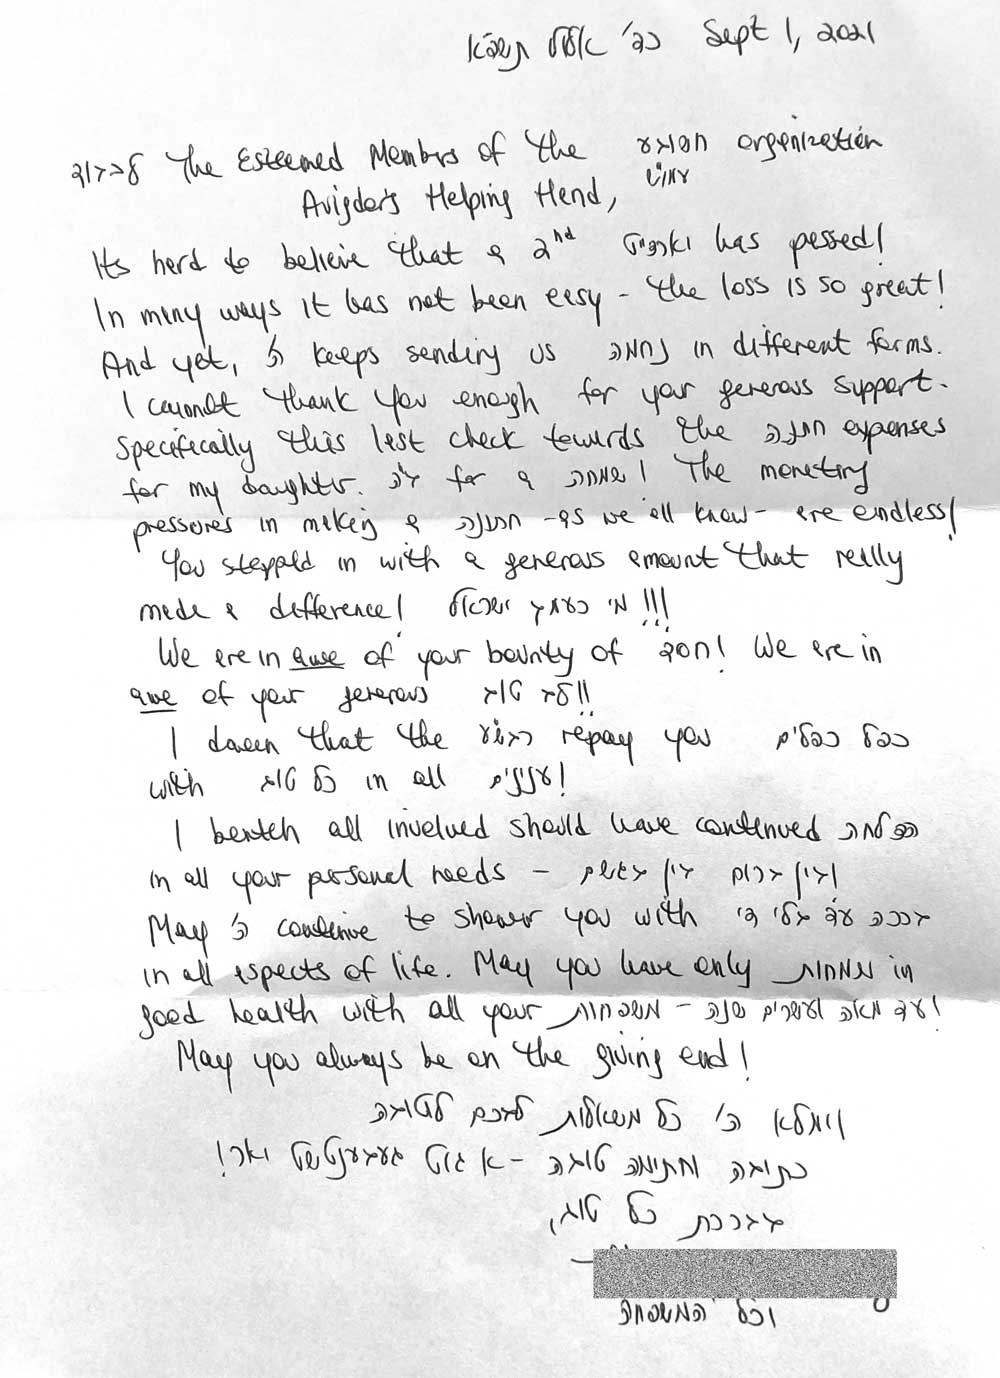 כד' אלול תשפ"א Sept 1, 2021
לכבוד The Esteemed Members of the organization
Avigdor's Helping Hand,
Its hard to believe that a 2nd יארצייט has passed!
In many ways it has not been easy - the loss is so great!
And yet, ה' keeps sending us נחמה in different forms.
I cannot thank you enough for your generous support.
Specifically this last check towards the חתונה expenses
for my daughter. for a שמחה! The monetary
pressures in making a חתונה - as we all know - are endless!
You stepped in with a generous amount that really
made a difference! מי כעמך ישראל!!!
We are in awe of your bounty of חסד! We are in
awe of your generous לב טוב!!
I daven that the רבש"ע repay you כפל כפלים
with כל טוב in all ענינים!
I bentch all involved should have continued הצלחה
in all your personal needs - בין בגשם בין ברוח!
May ה' continue to shower you with ברכה עד בלי די
in all aspects of life. May you have only שמחות in
good health with all your משפחות - עד מאה ועשרים שנה!
May you always be on the giving end!
וימלא ה' כל משאלות לבכם לטובה
כתיבה וחתימה טובה - א גוט געבענטשט יאר!
בברכת כל טוב,
וכל המשפחה